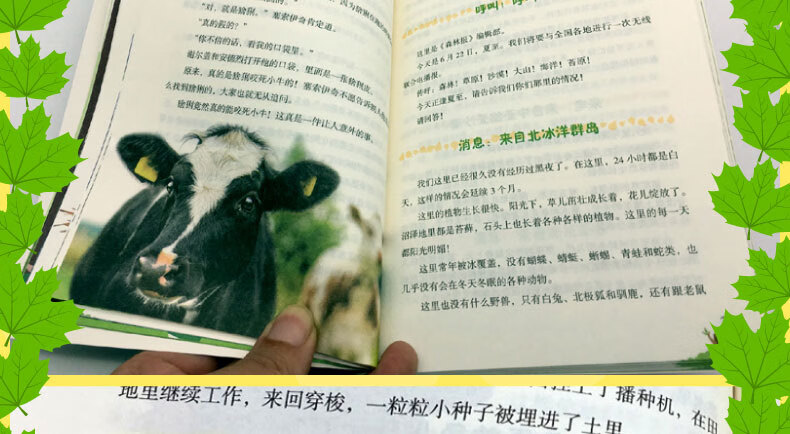 "对,就是猞猁。"塞索伊奇肯定道。
"真的假的?"
"你不信的话,看我的口袋里。"
原来,真的是猞猁咬死小牛的!塞索伊奇不愿告诉别人
么找到猞猁的,大家也就无从追问。
猞猁竟然真的能咬死小牛!这真是一件让人意外的事。
呼叫!
这里是《森林报》编辑部。
今天是6月22日,夏至。我们将要与全国各地进行一次无线
联合电播报。
呼呼!森林!草原!沙漠!大山!海洋!苔原!
今天正逢夏至,请告诉我们你们那里的情况!
请回答!
消息:来自北冰洋群岛
我们这里已经很久没有经历过黑夜了。在这里,24小时都是白
天,这样的情况会延续3个月。
这里的植物生长很快。阳光下,草儿茁壮成长着,花儿绽放了。
沼泽地里都是苔藓,石头上也长着各种各样的植物。这里的每一天
都阳光明媚!
这里常年被冰覆盖,没有蝴蝶、蜻蜓、蜥蜴、青蛙和蛇类,也
几乎没有会在冬天冬眠的各种动物。
这里也没有什么野兽,只有白兔、北极狐和驯鹿,还有跟老鼠
播种机,在田
地里继续工作,来回穿梭,一粒粒小种子被埋进了土里